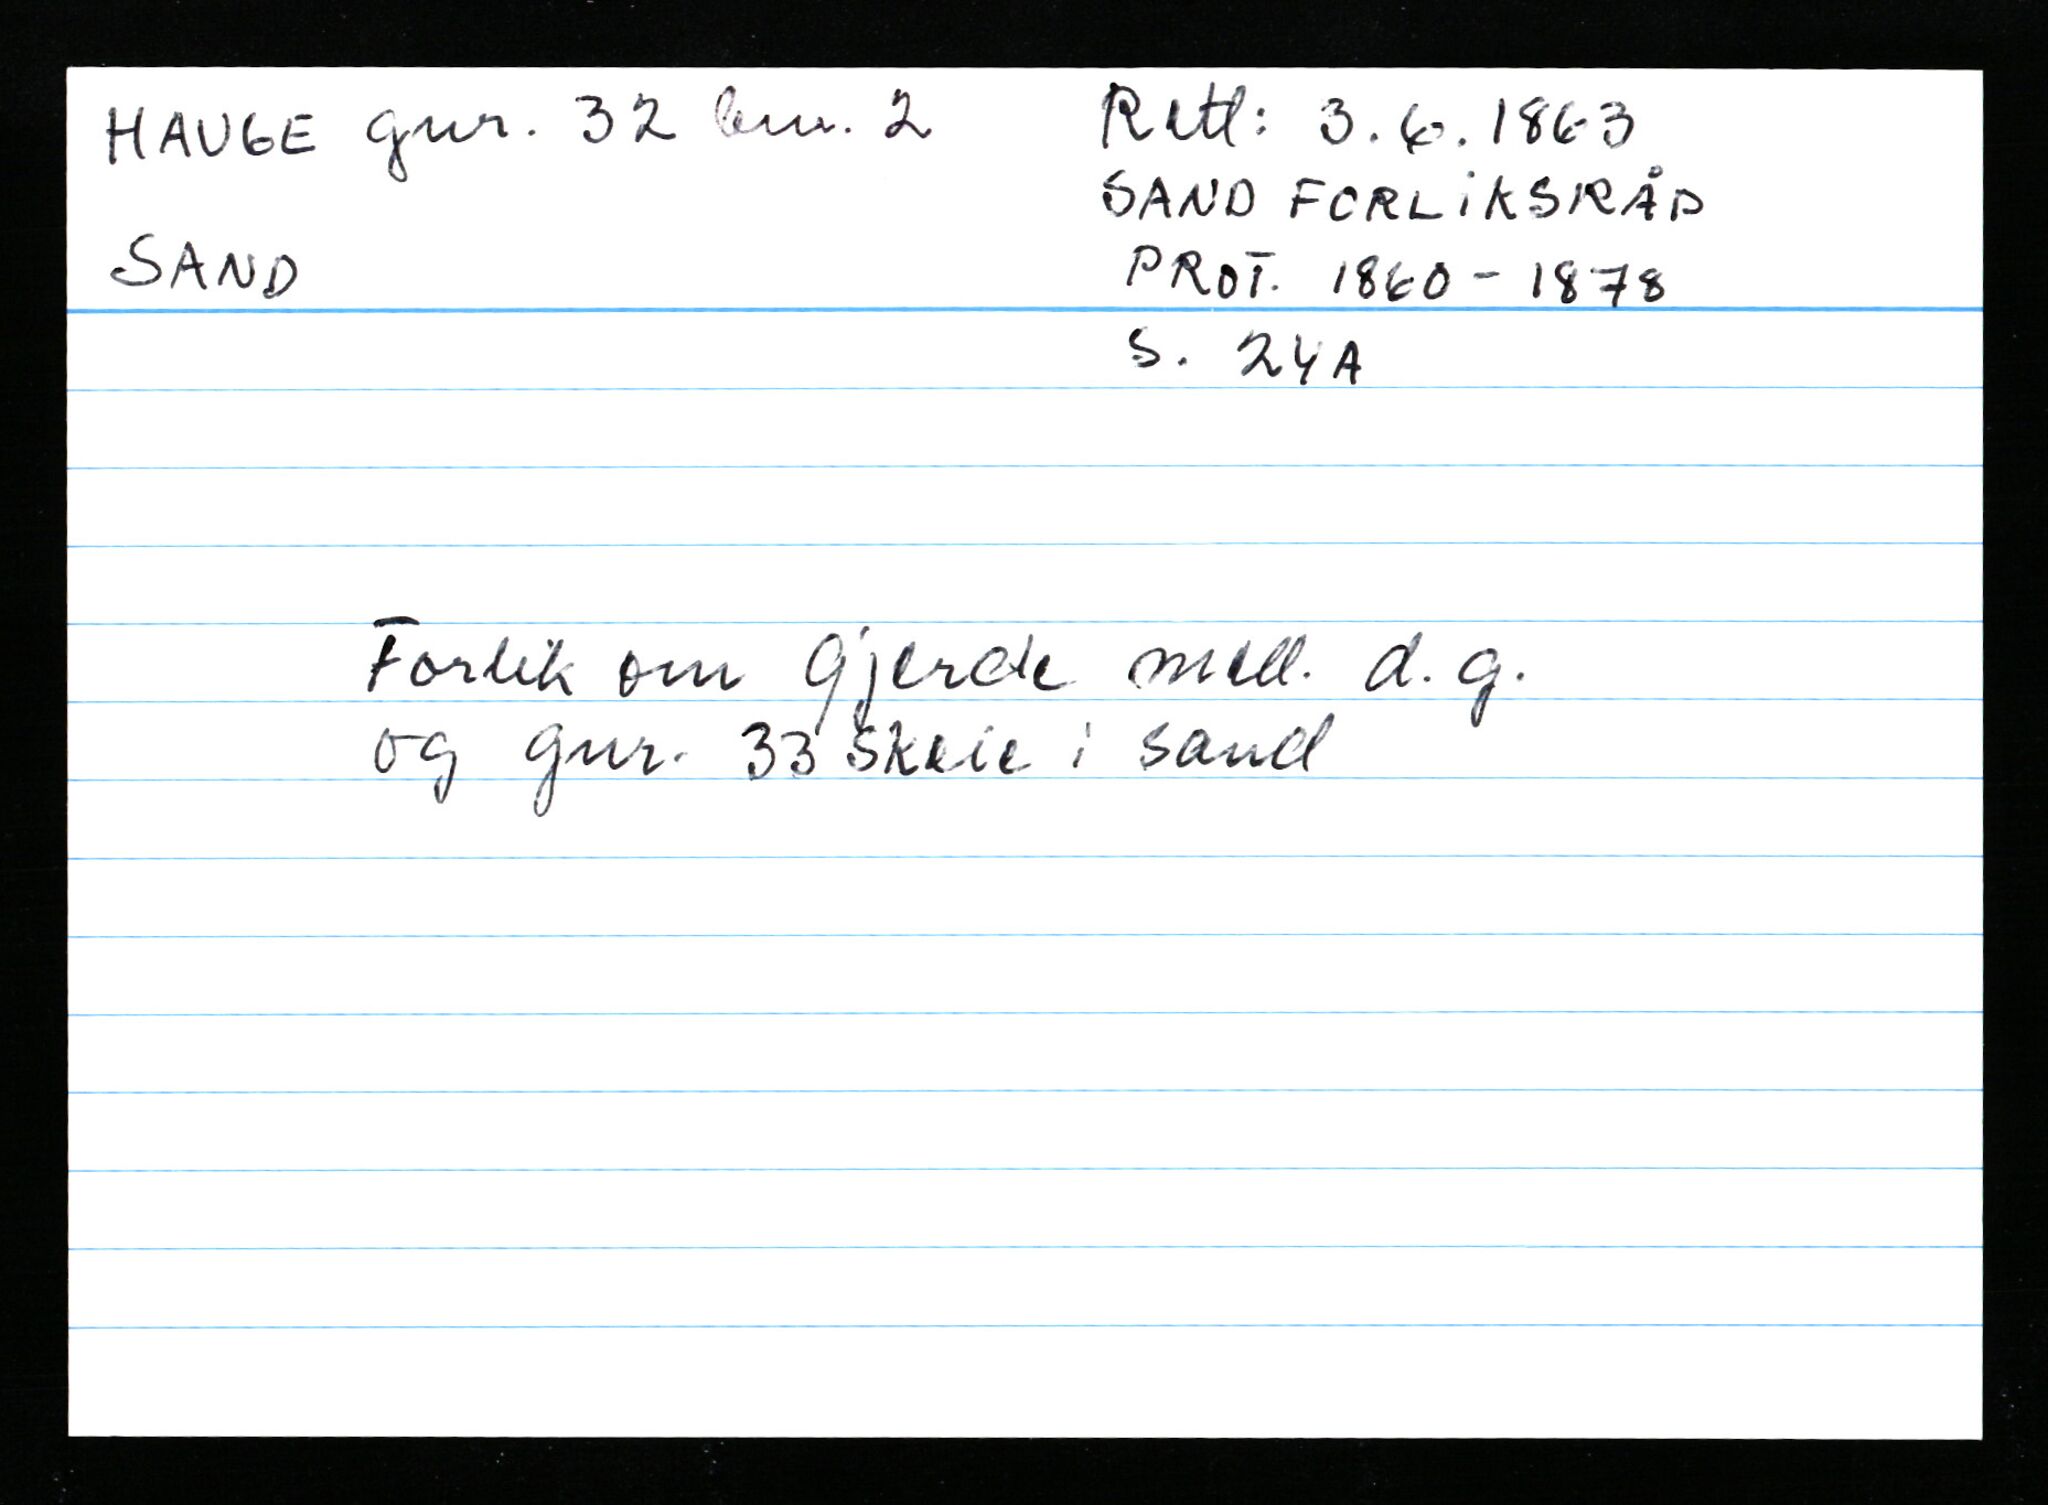 HAUGE gnr. 32 bnr. 2
SAND
Retl: 3.6.1863
SAND FORLIKSRÅD
PROT. 1860-1878
S. 24A
Forlik om gjerde mell. d. g.
og gnr. 33 Skeie i Sand